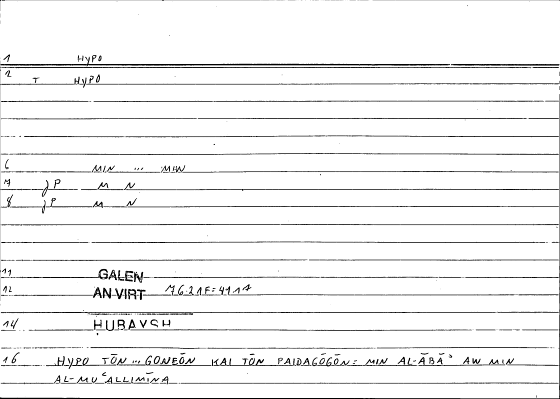 1 HYPO
2 T HYPO
6 MIN ... MIN
7 JP M N
8 JP M N
11 GALEN
12 AN VIRT 76.21F=4117
14 HUBAYSH
16 HYPO TŌN ... GONEŌN KAI TŌN PAIDAGŌGŌN: MIN AL-ĀBĀʾ AW MIN
AL-MUʿALLIMĪNA